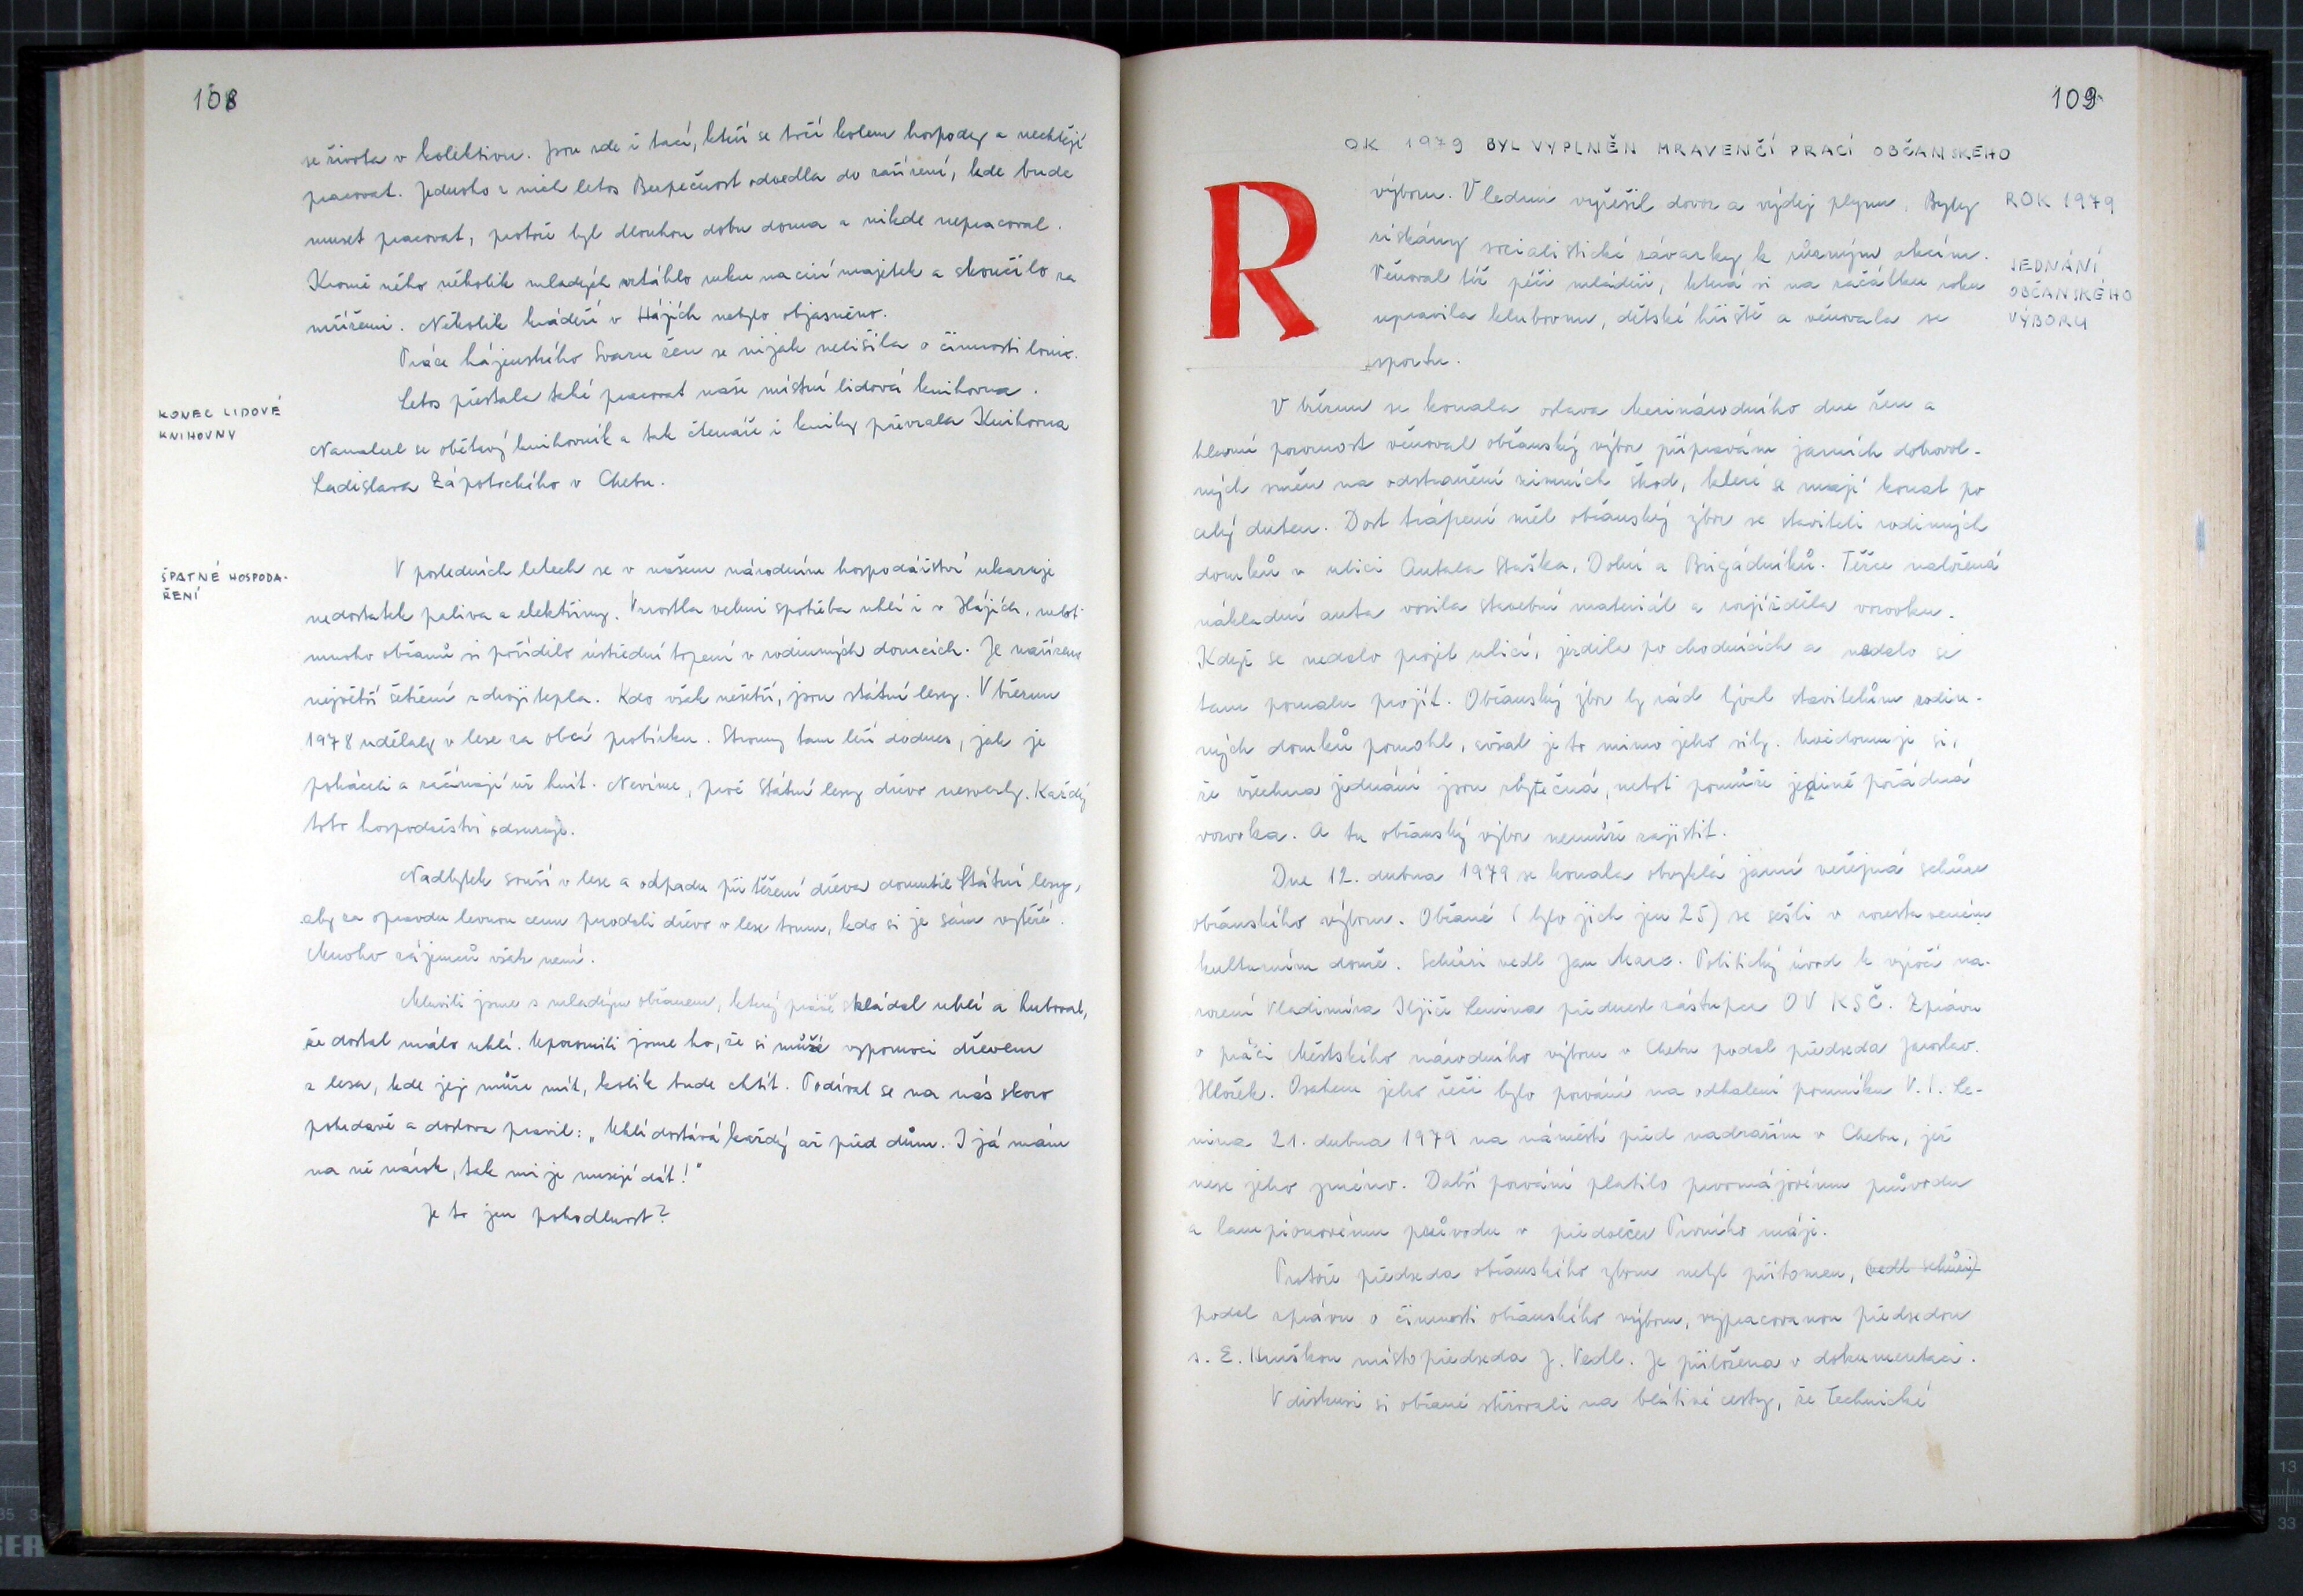 108
se života v kolektivu. Jsou zde i tací, kteří se točí kolem hospody a nechtějí
pracovat. Jednoho z nich letos Bezpečnost odvedla do zařízení, kde bude
muset pracovat, protože byl dlouhou dobu doma a nikde nepracoval.
Kromě něho několik mladých vztáhlo ruku na cizí majetek a skončilo za
mřížemi. Několik krádeží v Hájích nebylo objasněno.
Práce hájenského Svazu žen se nijak nelišila o činnosti loni.
KONEC LIDOVÉ
KNIHOVNY
Letos přestala také pracovat naše místní lidová knihovna.
Nenašel se obětavý knihovník a tak čtenáře i knihy převzala Knihovna
Ladislava Zápotockého v Chebu.
ŠPATNÉ HOSPODA-
ŘENÍ
V posledních letech se v našem národním hospodářství ukazuje
nedostatek paliva a elektřiny. Vzrostla velmi spotřeba uhlí i v Hájích, neboť
mnoho občanů si pořídilo ústřední topení v rodinných domcích. Je nařízeno
největší šetření zdroji tepla. Kdo však nešetří, jsou státní lesy. V březnu
1978 udělaly v lese za obcí probírku. Stromy tam leží dodnes, jak je
poháceli a začínají už hnít. Nevíme, proč Státní lesy dřevo nesvezly. Každý
toto hospodářství odsuzuje.
Nadbytek souší v lese a odpadu při těžení dřeva donutil Státní lesy,
aby za opravdu levnou cenu prodali dřevo v lese tomu, kdo si je sám vytěží.
Mnoho zájemců však není.
Mluvili jsme s mladým občanem, který právě skládal uhlí a huboval,
že dostal málo uhlí. Upozornili jsme ho, že si může vypomoci dřevem
z lesa, kde jej může mít, kolik bude chtít. Podíval se na nás skoro
pohrdavě a doslova pravil: „Uhlí dostává každý až před dům. I já mám
na ně nárok, tak mi je musejí dát!"
Je to jen pohodlnost?
109
OK 1979 BYL VYPLNĚN MRAVENČÍ PRACÍ OBČANSKÉHO
R
výboru. V lednu vyřešil dovoz a výdej plynu. Byly
ROK 1979
získány socialistické závazky k různým akcím.
JEDNÁNÍ
OBČANSKÉHO
VÝBORU
Věnoval též péči mládeži, která si na začátku roku
upravila klubovnu, dětské hřiště a věnovala se
sportu.
V březnu se konala oslava Mezinárodního dne žen a
hlavní pozornost věnoval občanský výbor přípravám jarních dobrovol-
ných směn na odstranění zimních škod, které se mají konat po
celý duben. Dost trápení měl občanský zbor se staviteli rodinných
domků v ulici Antala Staška, Dolní a Brigádníků. Těžce naložená
nákladní auta vozila stavební materiál a rozjížděla vozovku.
Když se nedalo projet ulicí, jezdila po chodnících a nedalo se
tam pomalu projít. Občanský zbor by rád býval stavitelům rodin-
ných domků pomohl, avšak je to mimo jeho síly. Uvědomuje si,
že všechna jednání jsou zbytečná, neboť pomůže jedině pořádná
vozovka. A tu občanský výbor nemůže zajistit.
Dne 12. dubna 1979 se konala obvyklá jarní veřejná schůze
občanského výboru. Občané (bylo jich jen 25) se sešli v rozestavěném
kulturním domě. Schůzi vedl Jan Marx. Politický úvod k výročí na-
rození Vladimíra Iljiče Lenina přednesl zástupce OV KSČ. Zprávu
o práci Městského národního výboru v Chebu podal předseda Jaroslav
Hložek. Obsahem jeho řeči bylo pozvání na odhalení pomníku V. I. Le-
nina 21. dubna 1979 na náměstí před nádražím v Chebu, jež
nese jeho jméno. Další pozvání platilo prvomájovému průvodu
a lampionovému průvodu v předvečer Prvního máje.
Protože předseda občanského zboru nebyl přítomen, vedl schůzi)
podal zprávu o činnosti občanského výboru, vypracovanou předsedou
s. E. Hruškou místopředseda J. Vedl. Je přiložena v dokumentaci.
V diskusi si občané stěžovali na blátivé cesty, že Technické